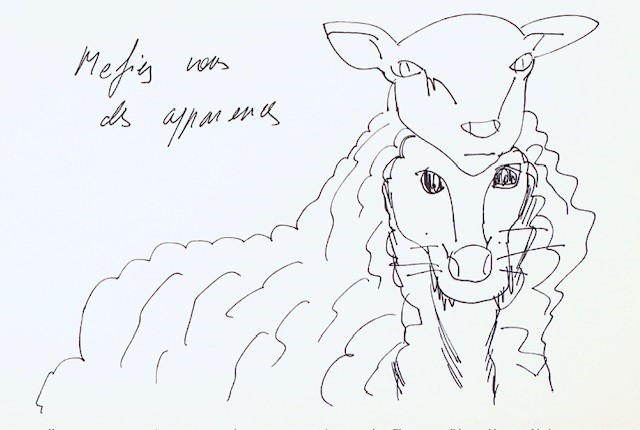 Mefiez vous
des apparences